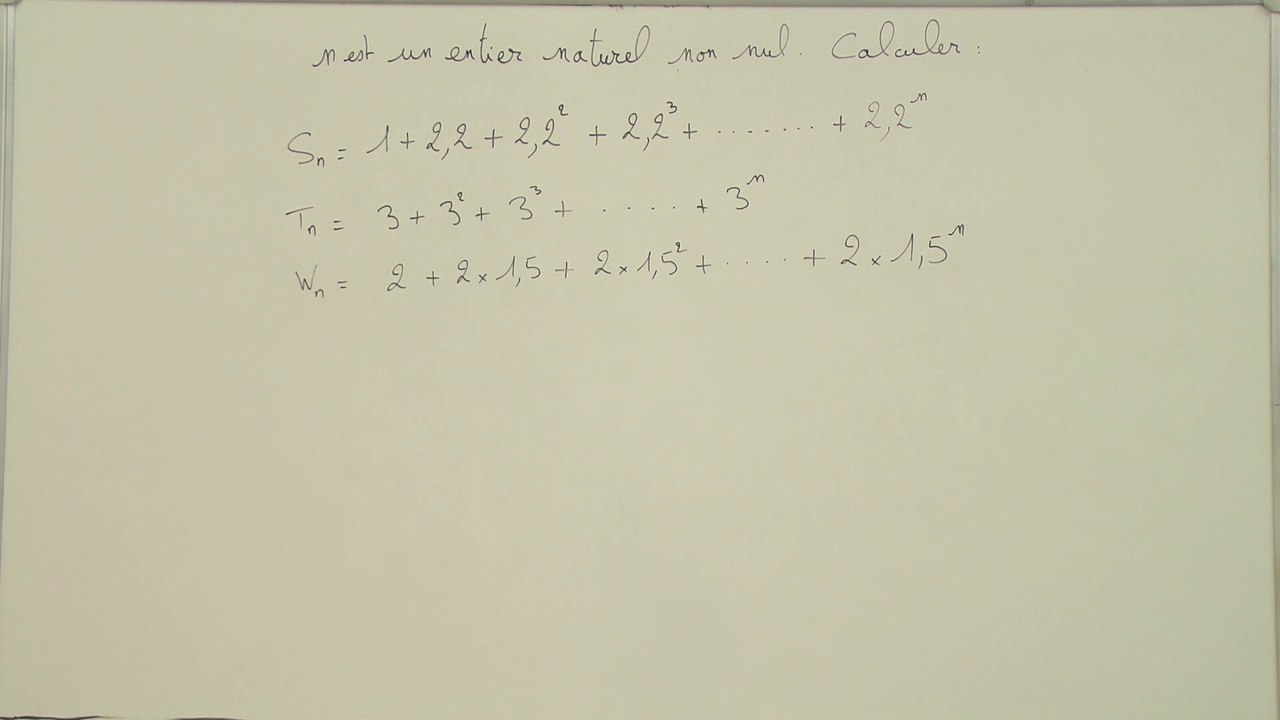 n est un entier naturel non nul. Calculer :
Sₙ = 1 + 2,2 + 2,2² + 2,2³ + ....... + 2,2ⁿ
Tₙ = 3 + 3² + 3³ + ..... + 3ⁿ
Wₙ = 2 + 2 × 1,5 + 2 × 1,5² + ..... + 2 × 1,5ⁿ